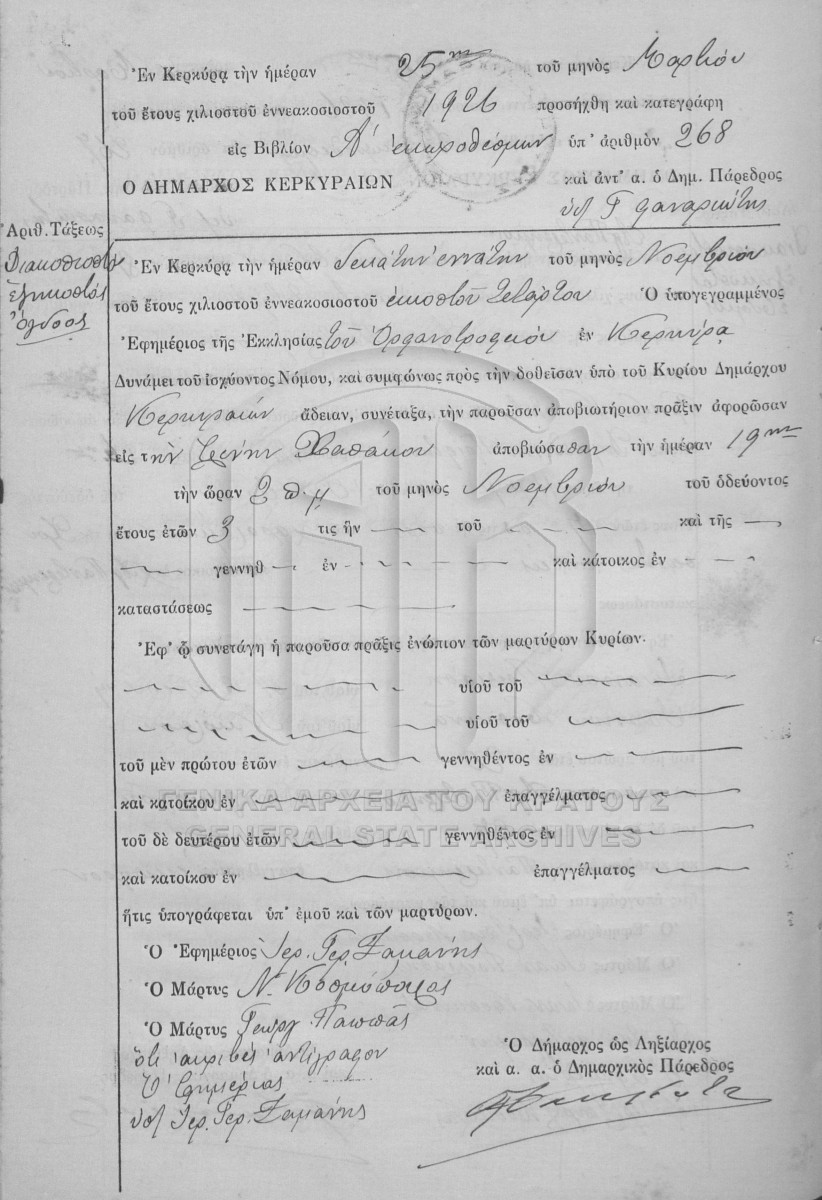 Ἐν Κερκύρᾳ τὴν ἡμέραν 25ην τοῦ μηνὸς Μαρτίου
τοῦ ἔτους χιλιοστοῦ ἐννεακοσιοστοῦ 1926 προσήχθη καὶ κατεγράφη
εἰς Βιβλίον Α′ ἐκπροθέσμων ὑπ' ἀριθμὸν 268
Ο ΔΗΜΑΡΧΟΣ ΚΕΡΚΥΡΑΙΩΝ καὶ ἀντ' α. ὁ Δημ. Πάρεδρος
Γ Φαναριώτης
Ἀριθ. Τάξεως
Διακοσιοστὸν
ἑξηκοστὸν
ὄγδοον
Ἐν Κερκύρᾳ τὴν ἡμέραν δεκάτην ἐννάτην τοῦ μηνὸς Νοεμβρίου
τοῦ ἔτους χιλιοστοῦ ἐννεακοσιοστοῦ εἰκοστοῦ τετάρτου Ὁ ὑπογεγραμμένος
Ἐφημέριος τῆς Ἐκκλησίας τοῦ Ὀρφανοτροφείου ἐν Κερκύρᾳ
Δυνάμει τοῦ ἰσχύοντος Νόμου, καὶ συμφώνως πρὸς τὴν δοθεῖσαν ὑπὸ τοῦ Κυρίου Δημάρχου
Κερκυραίων ἄδειαν, συνέταξα, τὴν παροῦσαν ἀποβιωτήριον πρᾶξιν ἀφορῶσαν
εἰς τὴν Εἰρήνην ἀποβιώσασαν τὴν ἡμέραν 19ην
τὴν ὥραν 2 π μ τοῦ μηνὸς Νοεμβρίου τοῦ ὁδεύοντος
ἔτους ἐτῶν 3 τις ἦν τοῦ καὶ τῆς
γεννηθ ἐν καὶ κάτοικος ἐν
καταστάσεως
Ἐφ' ᾧ συνετάγη ἡ παροῦσα πρᾶξις ἐνώπιον τῶν μαρτύρων Κυρίων.
υἱοῦ τοῦ
υἱοῦ τοῦ
τοῦ μὲν πρώτου ἐτῶν γεννηθέντος ἐν
καὶ κατοίκου ἐν ἐπαγγέλματος
ΓΕΝΙΚΑ ΑΡΧΕΙΑ ΤΟΥ ΚΡΑΤΟΥΣ
τοῦ δὲ δευτέρου ἐτῶν γεννηθέντος ἐν
GENERAL STATE ARCHIVES
καὶ κατοίκου ἐν ἐπαγγέλματος
ἥτις ὑπογράφεται ὑπ' ἐμοῦ καὶ τῶν μαρτύρων.
Ὁ Ἐφημέριος Ἱερ. Γερ. Ζαμάνης
Ὁ Μάρτυς Ν.
Ὁ Μάρτυς Γεώργ Παππᾶς
ὅτι ἀκριβὲς ἀντίγραφον
Ὁ Ἐφημέριος
Ἱερ. Γερ. Ζαμάνης
Ὁ Δήμαρχος ὡς Ληξίαρχος
καὶ α. α. ὁ Δημαρχικὸς Πάρεδρος